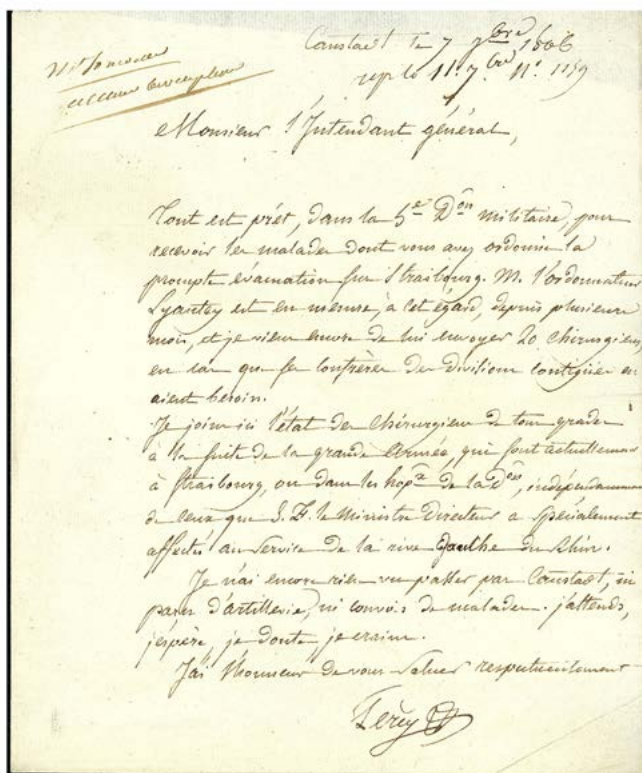 Canstadt le 7 7bre 1806
rep le 11. 7bre N° 1159
Monsieur l'Intendant général,
Tout est prêt, dans la 5e Don militaire, pour
recevoir les malades dont vous avez ordonné la
prompte évacuation sur Strasbourg. M. l'ordonnateur
Lyautey est en mesure, à cet égard, depuis plusieurs
mois, et je viens encore de lui envoyer 20 chirurgiens,
en cas que ses confrères des divisions contigües en
aient besoin.
Je joins ici l'état des chirurgiens de tous grades
à la suite de la grande Armée, qui sont actuellement
à Strasbourg, ou dans les hopx de la Don, indépendamment
de ceux que S. E. le Ministre Directeur a spécialement
affectés au service de la rive gauche du Rhin.
Je n'ai encore rien vu passer par Canstadt, ni
parcs d'artillerie, ni convois de malades. j'attends,
j'espère, je doute, je crains.
J'ai l'honneur de vous saluer respectueusement
Percy